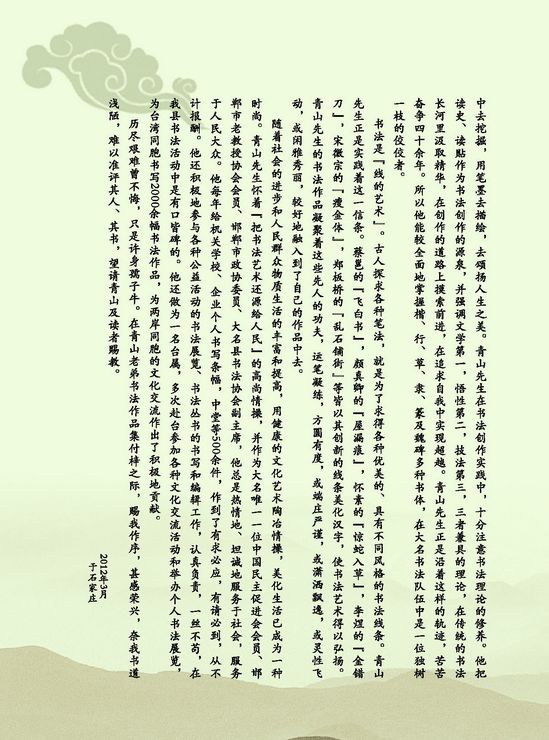 中去挖掘，用笔墨去描绘，去颂扬人生之美。青山先生在书法创作实践中，十分注意书法理论的修养。他把
读史、读贴作为书法创作的源泉，并强调文学第一，悟性第二，技法第三，三者兼具的理论，在传统的书法
长河里汲取精华，在创作的道路上摸索前进，在追求自我中实现超越。青山先生正是沿着这样的轨迹，苦苦
奋争四十余年。所以他能较全面地掌握楷、行、草、隶、篆及魏碑多种书体，在大名书法队伍中是一位独树
一枝的佼佼者。
书法是「线的艺术」。古人探求各种笔法，就是为了求得各种优美的、具有不同风格的书法线条。青山
先生正是实践着这一信条。蔡邕的「飞白书」，颜真卿的「屋漏痕」，怀素的「惊蛇入草」，李煜的「金错
刀」，宋徽宗的「瘦金体」，郑板桥的「乱石铺街」等皆以其创新的线条美化汉字，使书法艺术得以弘扬。
青山先生的书法作品凝聚着这些先人的功夫，运笔凝练，方圆有度，或端庄严谨，或潇洒飘逸，或灵性飞
动，或闲雅秀丽，较好地融入到了自己的作品中去。
随着社会的进步和人民群众物质生活的丰富和提高，用健康的文化艺术陶冶情操，美化生活已成为一种
时尚。青山先生怀着「把书法艺术还源给人民」的高尚情操，并作为大名唯一一位中国民主促进会会员、邯
郸市老教授协会会员、邯郸市政协委员、大名县书法协会副主席，他总是热情地、坦诚地服务于社会，服务
于人民大众。他每年给机关学校、企业个人书写条幅，中堂等500余件，作到了有求必应，有请必到，从不
计报酬。他还积极地参与各种公益活动的书法展览、书法丛书的书写和编辑工作，认真负责，一丝不苟，在
我县书法活动中是有口皆碑的。他还做为一名台属，多次赴台参加各种文化交流活动和举办个人书法展览，
为台湾同胞书写2000余幅书法作品，为两岸同胞的文化交流作出了积极地贡献。
历尽艰难曾不悔，只是许身孺子牛。在青山老弟书法作品集付梓之际，赐我作序，甚感荣兴，奈我书道
浅陋，难以准评其人、其书，望请青山及读者赐教。
2012年3月
于石家庄